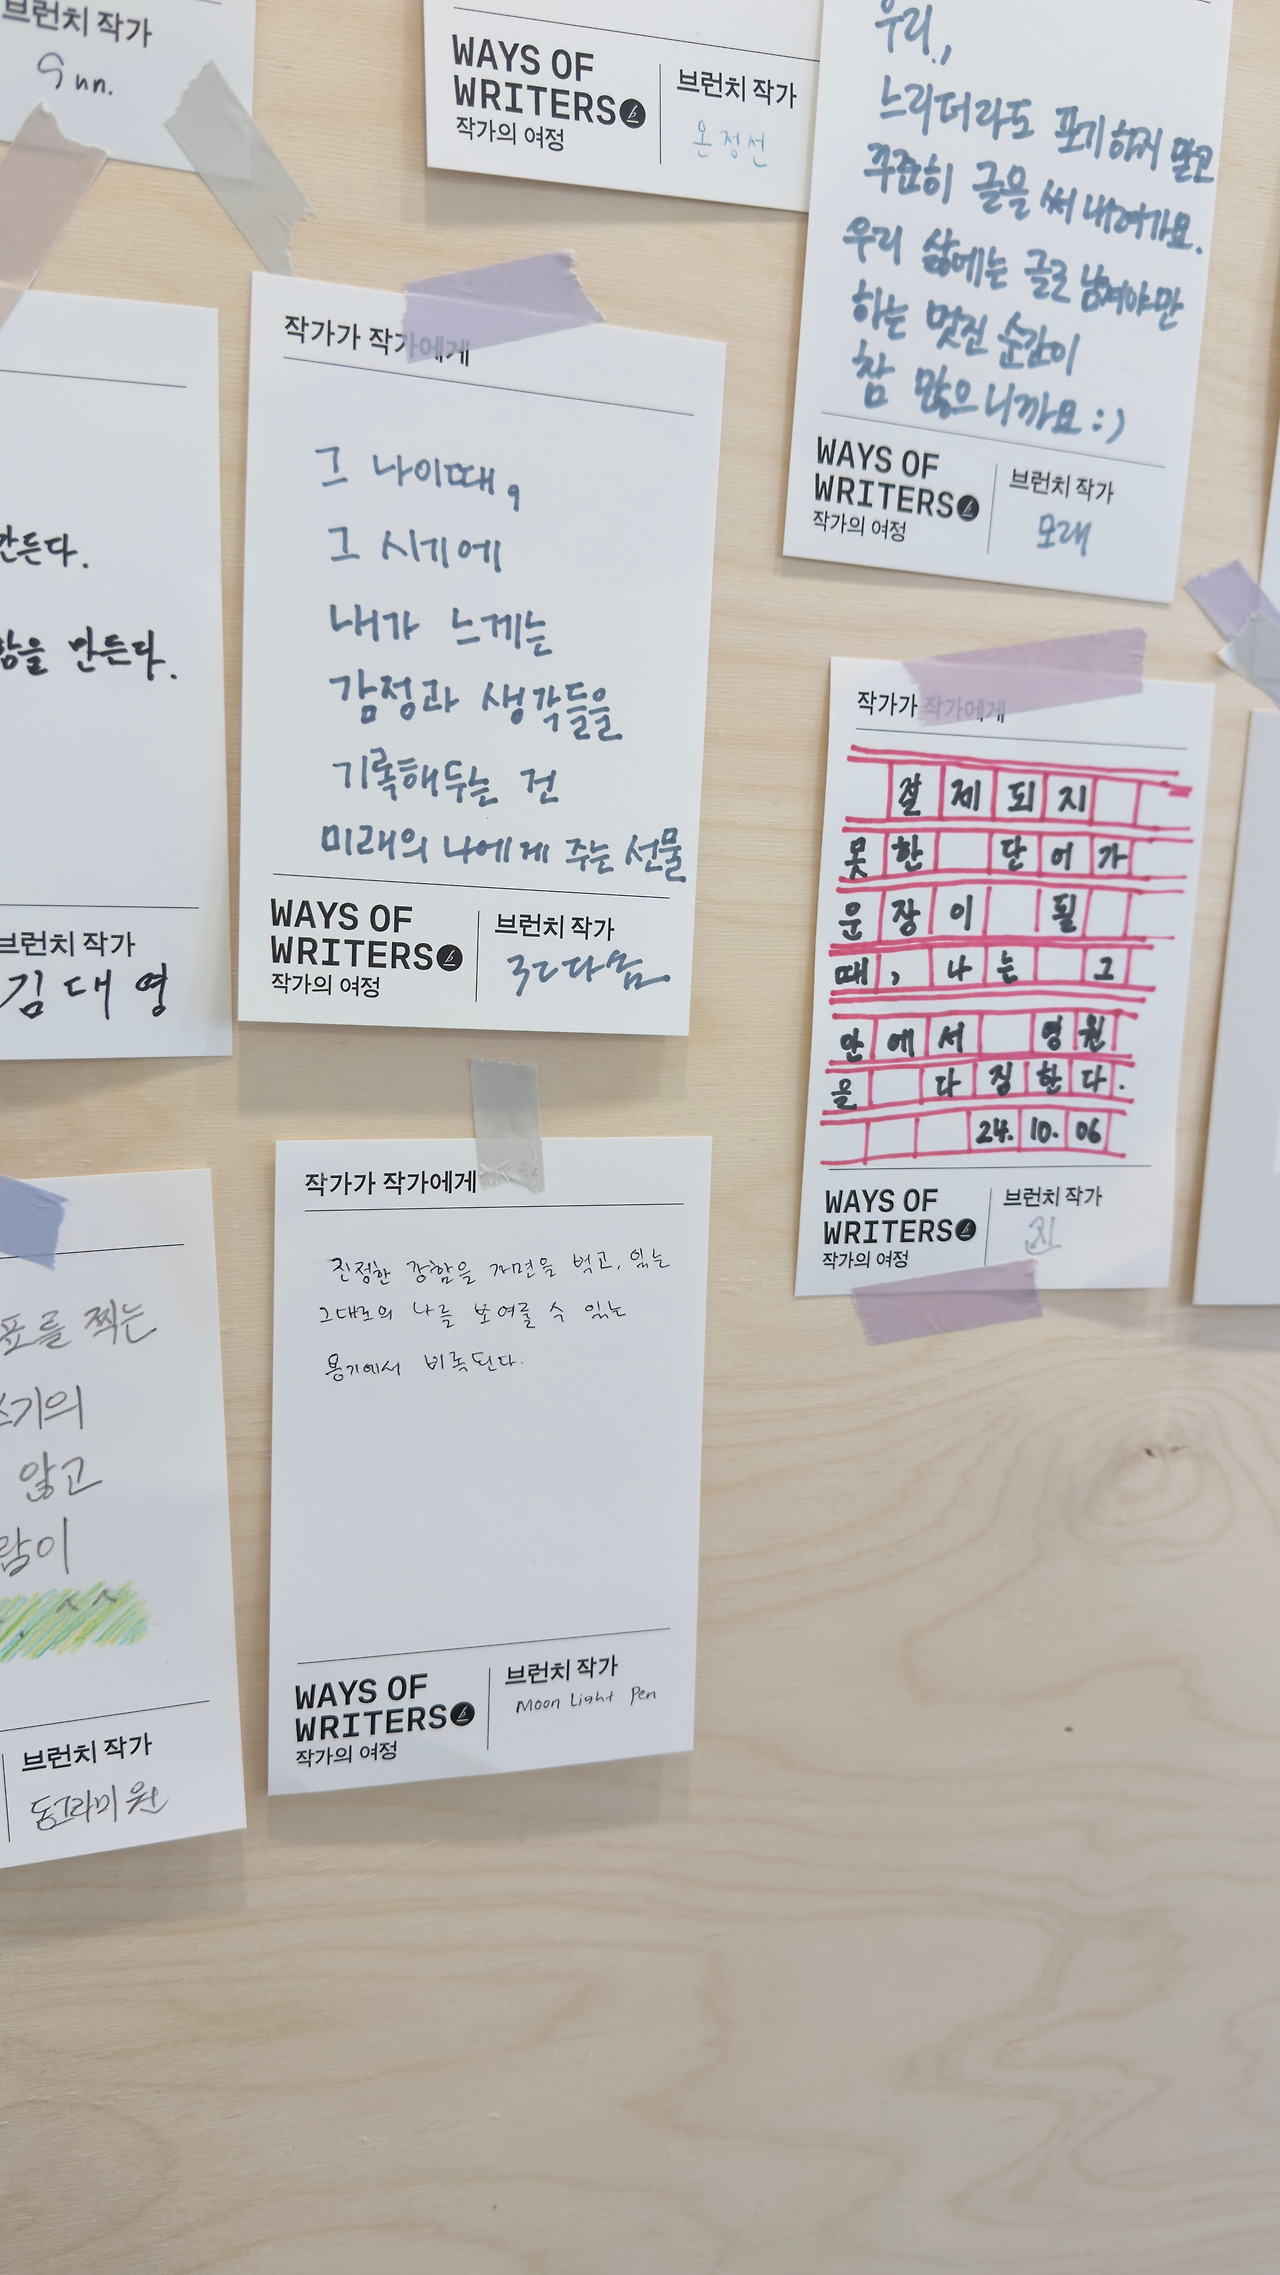 브런치 작가
Gun.
WAYS OF
WRITERS
작가의 여정
브런치 작가
온정선
우리,
느리더라도 포기하지 말고
꾸준히 글을 써 내려가요.
우리 삶에는 글로 남겨야만
하는 멋진 순간이
참 많으니까요 :)
WAYS OF
WRITERS
작가의 여정
브런치 작가
모래
만든다.
함을 만든다.
브런치 작가
김대영
작가가 작가에게
그 나이때,
그 시기에
내가 느께는
감정과 생각들을
기록해두는 건
미래의 나에게 주는 선물
WAYS OF
WRITERS
작가의 여정
브런치 작가
작가가 작가에게
잘 제 되 지
못 한 단 어 가
문 장 이 될
때, 나 는 그
안 에 서 영 원
을 다 짐 한 다.
24. 10. 06
WAYS OF
WRITERS
작가의 여정
브런치 작가
진
표를 찍는
쓰기의
않고
람이
^^
브런치 작가
동그라미 원
작가가 작가에게
진정한 강함은 가면을 벗고, 있는
그대로의 나를 보여줄 수 있는
용기에서 비롯된다.
WAYS OF
WRITERS
작가의 여정
브런치 작가
Moon Light Pen